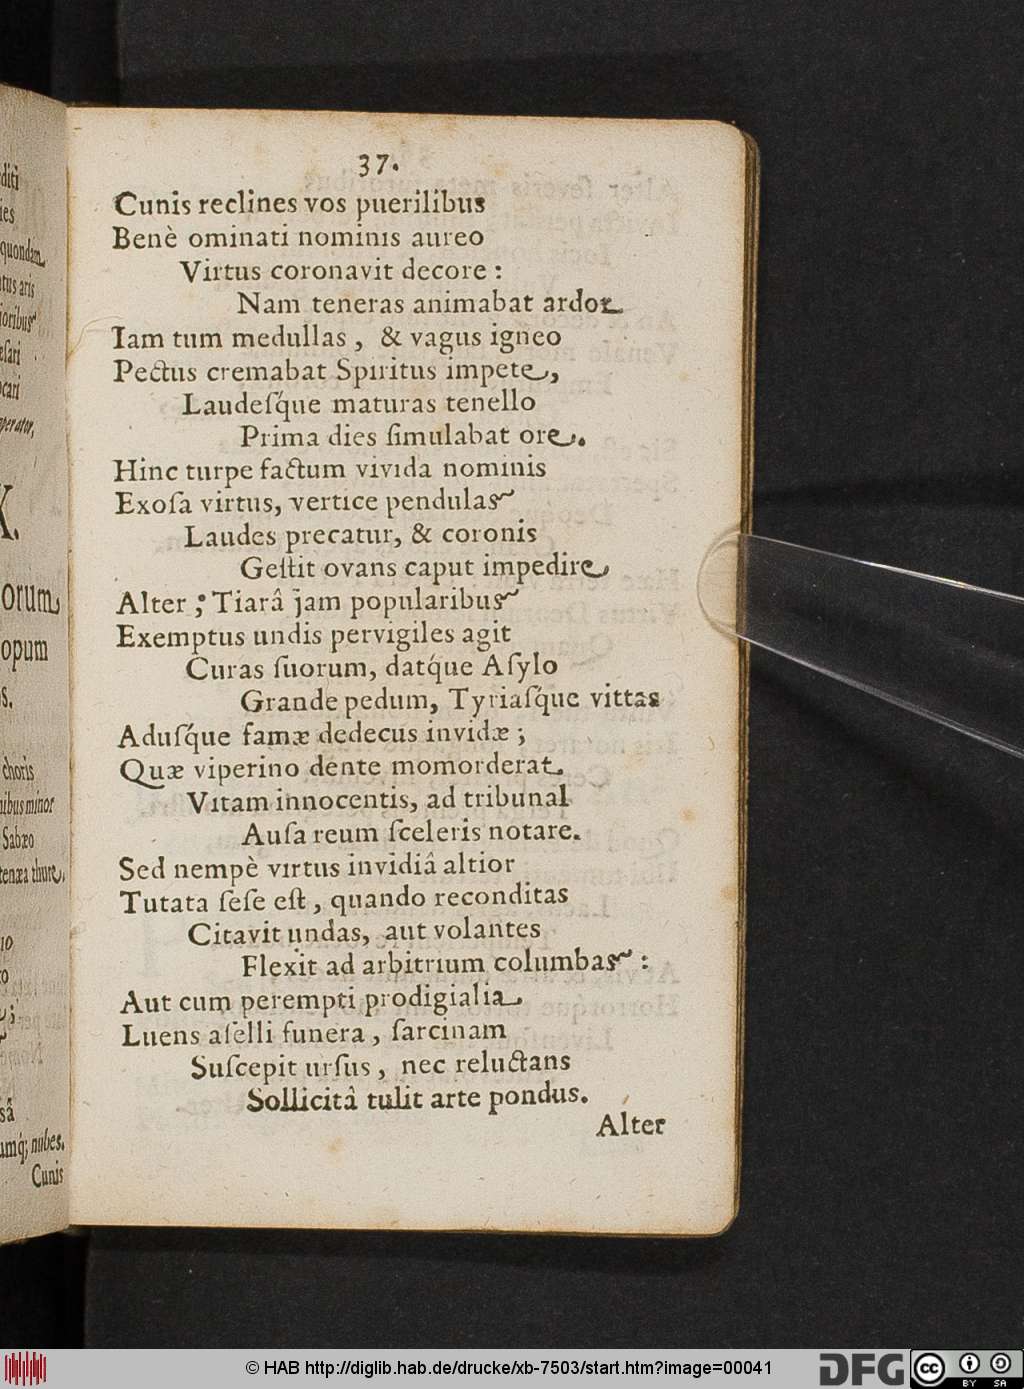 diti
ies
quondam
tus aris
ioribus
esari
ocari
perator,
X.
orum
opum
s.
choris
nibus minor
Sabæo
tenæa thure,
io
o
sâ
umq́; nubes.
Cunis
37.
Cunis reclines vos puerilibus
Benè ominati nominis aureo
Virtus coronavit decore :
Nam teneras animabat ardor
Iam tum medullas , & vagus igneo
Pectus cremabat Spiritus impete,
Laudeſq́ue maturas tenello
Prima dies ſimulabat ore.
Hinc turpe factum vivida nominis
Exoſa virtus, vertice pendulas
Laudes precatur, & coronis
Geſtit ovans caput impedire
Alter ; Tiarâ jam popularibus
Exemptus undis pervigiles agit
Curas ſuorum, datq́ue Aſylo
Grande pedum, Tyriaſque vittas
Aduſq́ue famæ dedecus invidæ ;
Quæ viperino dente momorderat
Vitam innocentis, ad tribunal
Auſa reum ſceleris notare.
Sed nempè virtus invidiâ altior
Tutata ſeſe eſt , quando reconditas
Citavit undas, aut volantes
Flexit ad arbitrium columbas :
Aut cum perempti prodigialia
Luens aſelli funera , ſarcinam
Suſcepit urſus , nec reluctans
Sollicitâ tulit arte pondus.
Alter
© HAB http://diglib.hab.de/drucke/xb-7503/start.htm?image=00041
DFG
cc
BY SA